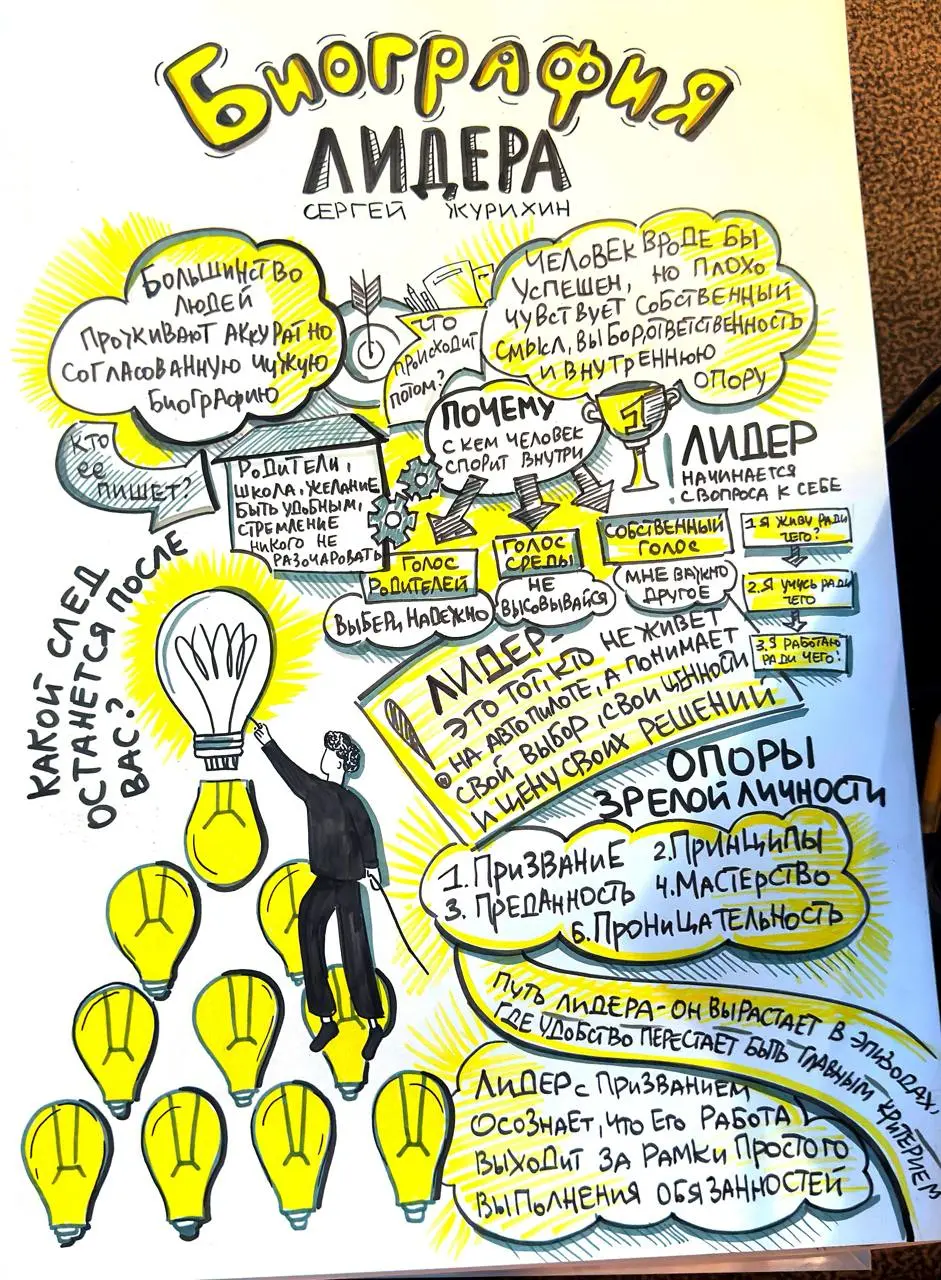 Биография
ЛИДЕРА
СЕРГЕЙ ЖУРИХИН
БОЛЬШИНСТВО
ЛЮДЕЙ
ПРОЖИВАЮТ АККУРАТНО
СОГЛАСОВАННУЮ ЧУЖУЮ
БИОГРАФИЮ
КТО
ЕЕ
ПИШЕТ?
РОДИТЕЛИ,
ШКОЛА, ЖЕЛАНИЕ
БЫТЬ УДОБНЫМ,
СТРЕМЛЕНИЕ
НИКОГО НЕ
РАЗОЧАРОВАТЬ
ЧТО
ПРОИСХОДИТ
ПОТОМ?
ЧЕЛОВЕК ВРОДЕ БЫ
УСПЕШЕН, НО ПЛОХО
ЧУВСТВУЕТ СОБСТВЕННЫЙ
СМЫСЛ, ВЫБОР, ОТВЕТСТВЕННОСТЬ
И ВНУТРЕННЮЮ
ОПОРУ
1
ПОЧЕМУ
С КЕМ ЧЕЛОВЕК
СПОРИТ ВНУТРИ
ГОЛОС
РОДИТЕЛЕЙ
ВЫБЕРИ НАДЕЖНО
ГОЛОС
СРЕДЫ
НЕ
ВЫСОВЫВАЙСЯ
СОБСТВЕННЫЙ
ГОЛОС
МНЕ ВАЖНО
ДРУГОЕ
! ЛИДЕР
НАЧИНАЕТСЯ
С ВОПРОСА К СЕБЕ
1 Я ЖИВУ РАДИ
ЧЕГО?
2. Я УЧУСЬ РАДИ
ЧЕГО
3. Я РАБОТАЮ
РАДИ ЧЕГО?
КАКОЙ СЛЕД
ОСТАНЕТСЯ ПОСЛЕ
ВАС?
! ЛИДЕР-
ЭТО ТОТ, КТО НЕ ЖИВЕТ
НА АВТОПИЛОТЕ, А ПОНИМАЕТ
СВОЙ ВЫБОР, СВОИ ЦЕННОСТИ
И ЦЕНУ СВОИХ РЕШЕНИЙ
ОПОРЫ
ЗРЕЛОЙ ЛИЧНОСТИ
1. ПРИЗВАНИЕ 2. ПРИНЦИПЫ
3. ПРЕДАННОСТЬ 4. МАСТЕРСТВО
5. ПРОНИЦАТЕЛЬНОСТЬ
ПУТЬ ЛИДЕРА - ОН ВЫРАСТАЕТ В ЭПИЗОДАХ,
ГДЕ УДОБСТВО ПЕРЕСТАЕТ БЫТЬ ГЛАВНЫМ КРИТЕРИЕМ
ЛИДЕР С ПРИЗВАНИЕМ
ОСОЗНАЕТ, ЧТО ЕГО РАБОТА
ВЫХОДИТ ЗА РАМКИ ПРОСТОГО
ВЫПОЛНЕНИЯ ОБЯЗАННОСТЕЙ